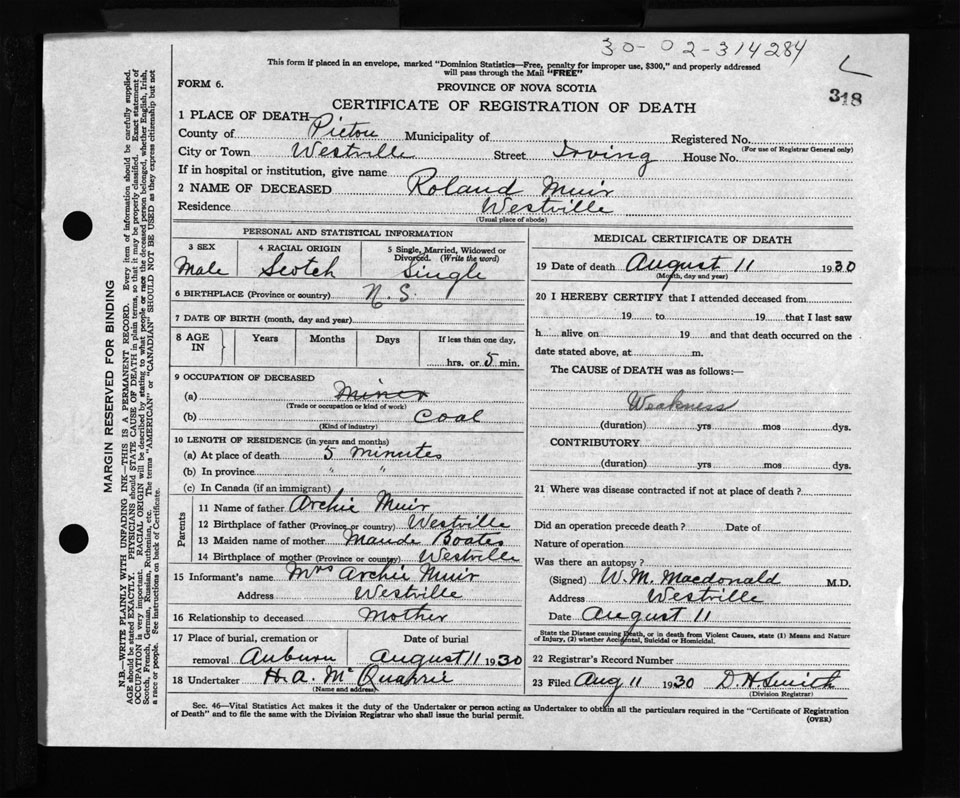 30-02-314284
This form if placed in an envelope, marked "Dominion Statistics—Free, penalty for improper use, $300," and properly addressed
will pass through the Mail "FREE"
L
318
FORM 6.
PROVINCE OF NOVA SCOTIA
CERTIFICATE OF REGISTRATION OF DEATH
1 PLACE OF DEATH
County of Pictou Municipality of Registered No.
(For use of Registrar General only)
City or Town Westville Street Irving House No.
If in hospital or institution, give name
2 NAME OF DECEASED Roland Muir
Residence Westville
(Usual place of abode)
PERSONAL AND STATISTICAL INFORMATION
3 SEX 4 RACIAL ORIGIN 5 Single, Married, Widowed or
Divorced. (Write the word)
Male Scotch Single
6 BIRTHPLACE (Province or country) N.S.
7 DATE OF BIRTH (month, day and year)
8 AGE IN Years Months Days If less than one day,
hrs. or 5 min.
9 OCCUPATION OF DECEASED
(a) Miner
(Trade or occupation or kind of work)
(b) Coal
(Kind of industry)
10 LENGTH OF RESIDENCE (in years and months)
(a) At place of death 5 minutes
(b) In province " "
(c) In Canada (if an immigrant)
Parents
11 Name of father Archie Muir
12 Birthplace of father (Province or country) Westville
13 Maiden name of mother Maude Boates
14 Birthplace of mother (Province or country) Westville
15 Informant's name Mrs Archie Muir
Address Westville
16 Relationship to deceased Mother
17 Place of burial, cremation or Date of burial
removal Auburn August 11 1930
18 Undertaker H. A. McQuarrie
(Name and address)
MEDICAL CERTIFICATE OF DEATH
19 Date of death August 11 1930
(Month, day and year)
20 I HEREBY CERTIFY that I attended deceased from
19 to 19 that I last saw
h alive on 19 and that death occurred on the
date stated above, at m.
The CAUSE of DEATH was as follows:—
Weakness
(duration) yrs mos dys.
CONTRIBUTORY
(duration) yrs mos dys.
21 Where was disease contracted if not at place of death?
Did an operation precede death? Date of
Nature of operation
Was there an autopsy?
(Signed) W. M. Macdonald M.D.
Address Westville
Date August 11
State the Disease causing Death, or in death from Violent Causes, state (1) Means and Nature
of Injury, (2) whether Accidental, Suicidal or Homicidal.
22 Registrar's Record Number
23 Filed Aug 11 1930 D. H Smith
(Division Registrar)
Sec. 46—Vital Statistics Act makes it the duty of the Undertaker or person acting as Undertaker to obtain all the particulars required in the "Certificate of Registration
of Death" and to file the same with the Division Registrar who shall issue the burial permit.
(OVER)
MARGIN RESERVED FOR BINDING
N.B.—WRITE PLAINLY WITH UNFADING INK—THIS IS A PERMANENT RECORD. Every item of information should be carefully supplied.
AGE should be stated EXACTLY. PHYSICIANS should STATE CAUSE OF DEATH in plain terms, so that it may be properly classified. Exact statement of
OCCUPATION is very important. RACIAL ORIGIN will be described by stating to what people or race the deceased person belonged, whether English, Irish,
Scotch, French, German, Russian, Ruthenian, etc. The terms "AMERICAN" or "CANADIAN" SHOULD NOT BE USED as they express citizenship but not
a race or people. See instructions on back of Certificate.